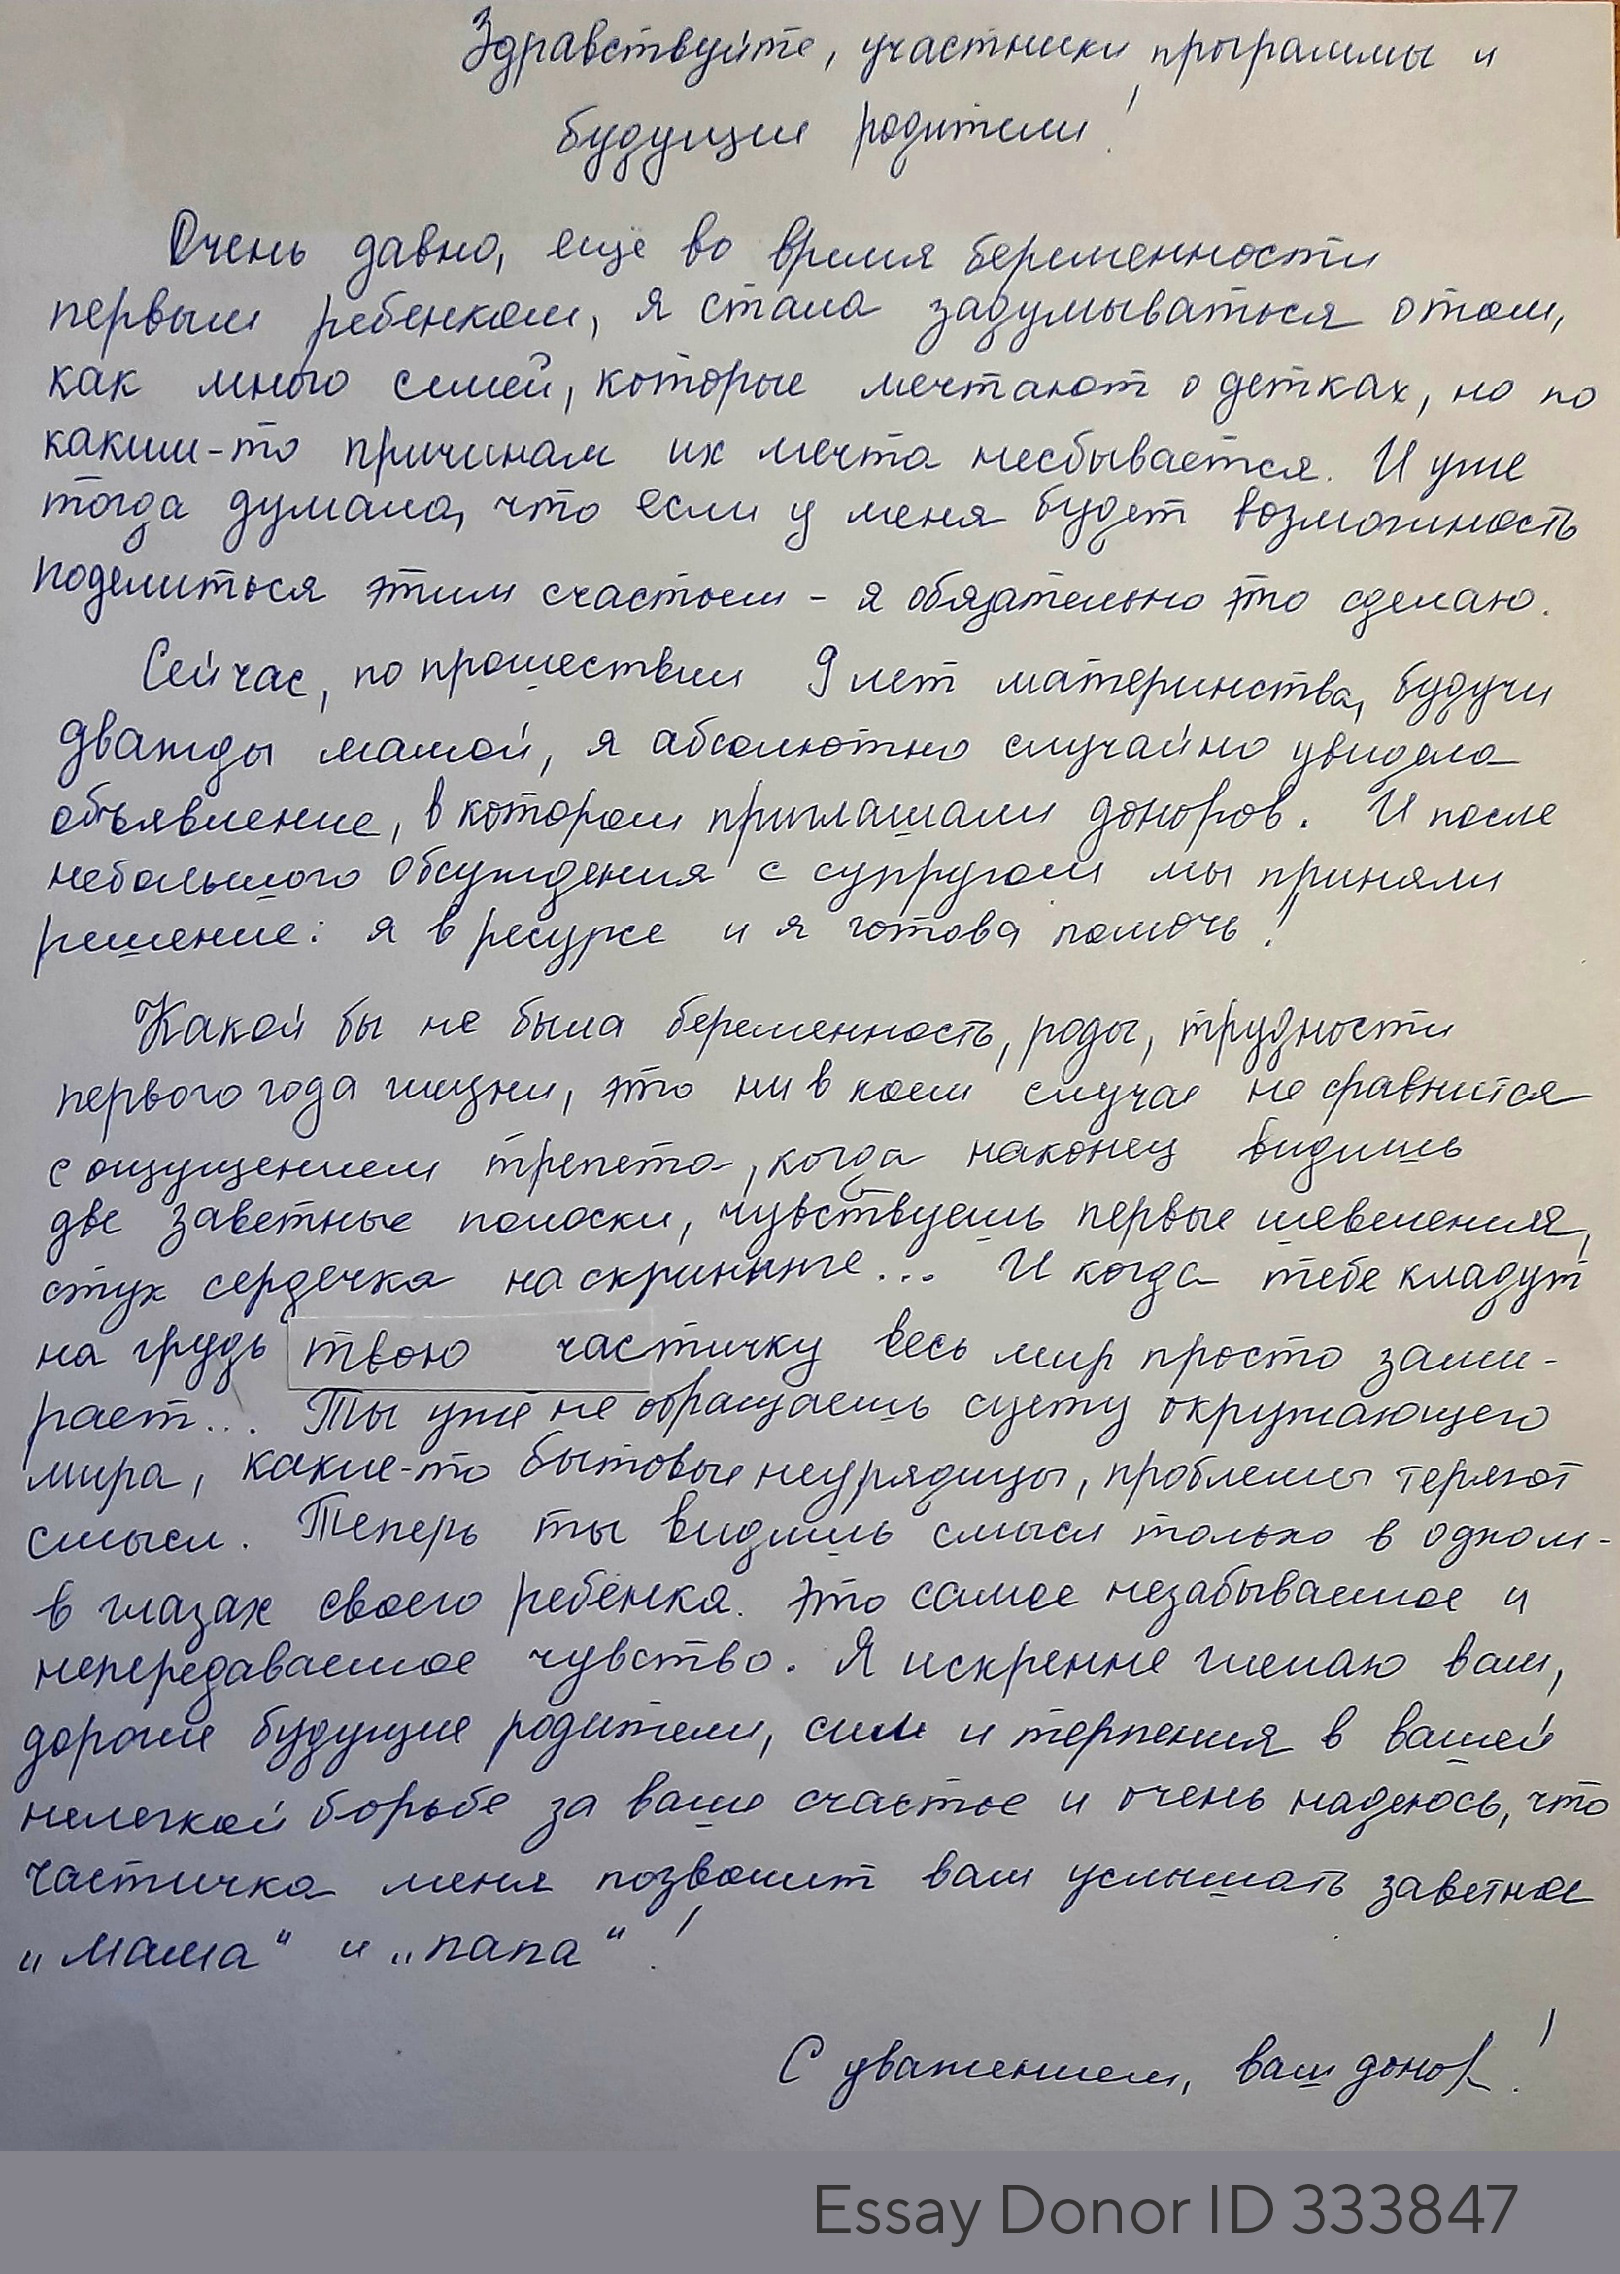 Здравствуйте, участники программы и
будущие родители!
Очень давно, еще во время беременности
первым ребенком, я стала задумываться о том,
как много семей, которые мечтают о детках, но по
каким-то причинам их мечта несбывается. И уже
тогда думала, что если у меня будет возможность
поделиться этим счастьем - я обязательно это сделаю.
Сейчас, по прошествии 9 лет материнства, будучи
дважды мамой, я абсолютно случайно увидела
объявление, в котором приглашали доноров. И после
небольшого обсуждения с супругом мы приняли
решение: я в ресурсе и я готова помочь!
Какой бы не была беременность, роды, трудности
первого года жизни, это ни в коем случае не сравнится
с ощущением трепета, когда наконец видишь
две заветные полоски, чувствуешь первые шевеления,
стук сердечка на скрининге... И когда тебе кладут
на грудь твою частичку весь мир просто зами-
рает... Ты уже не обращаешь суету окружающего
мира, какие-то бытовые неурядицы, проблемы теряют
смысл. Теперь ты видишь смысл только в одном -
в глазах своего ребёнка. Это самое незабываемое и
непередаваемое чувство. Я искренне желаю вам,
дорогие будущие родители, сил и терпения в вашей
нелегкой борьбе за ваше счастье и очень надеюсь, что
частичка меня позволит вам услышать заветное
"мама" и "папа"!
С уважением, ваш донор!
Essay Donor ID 333847